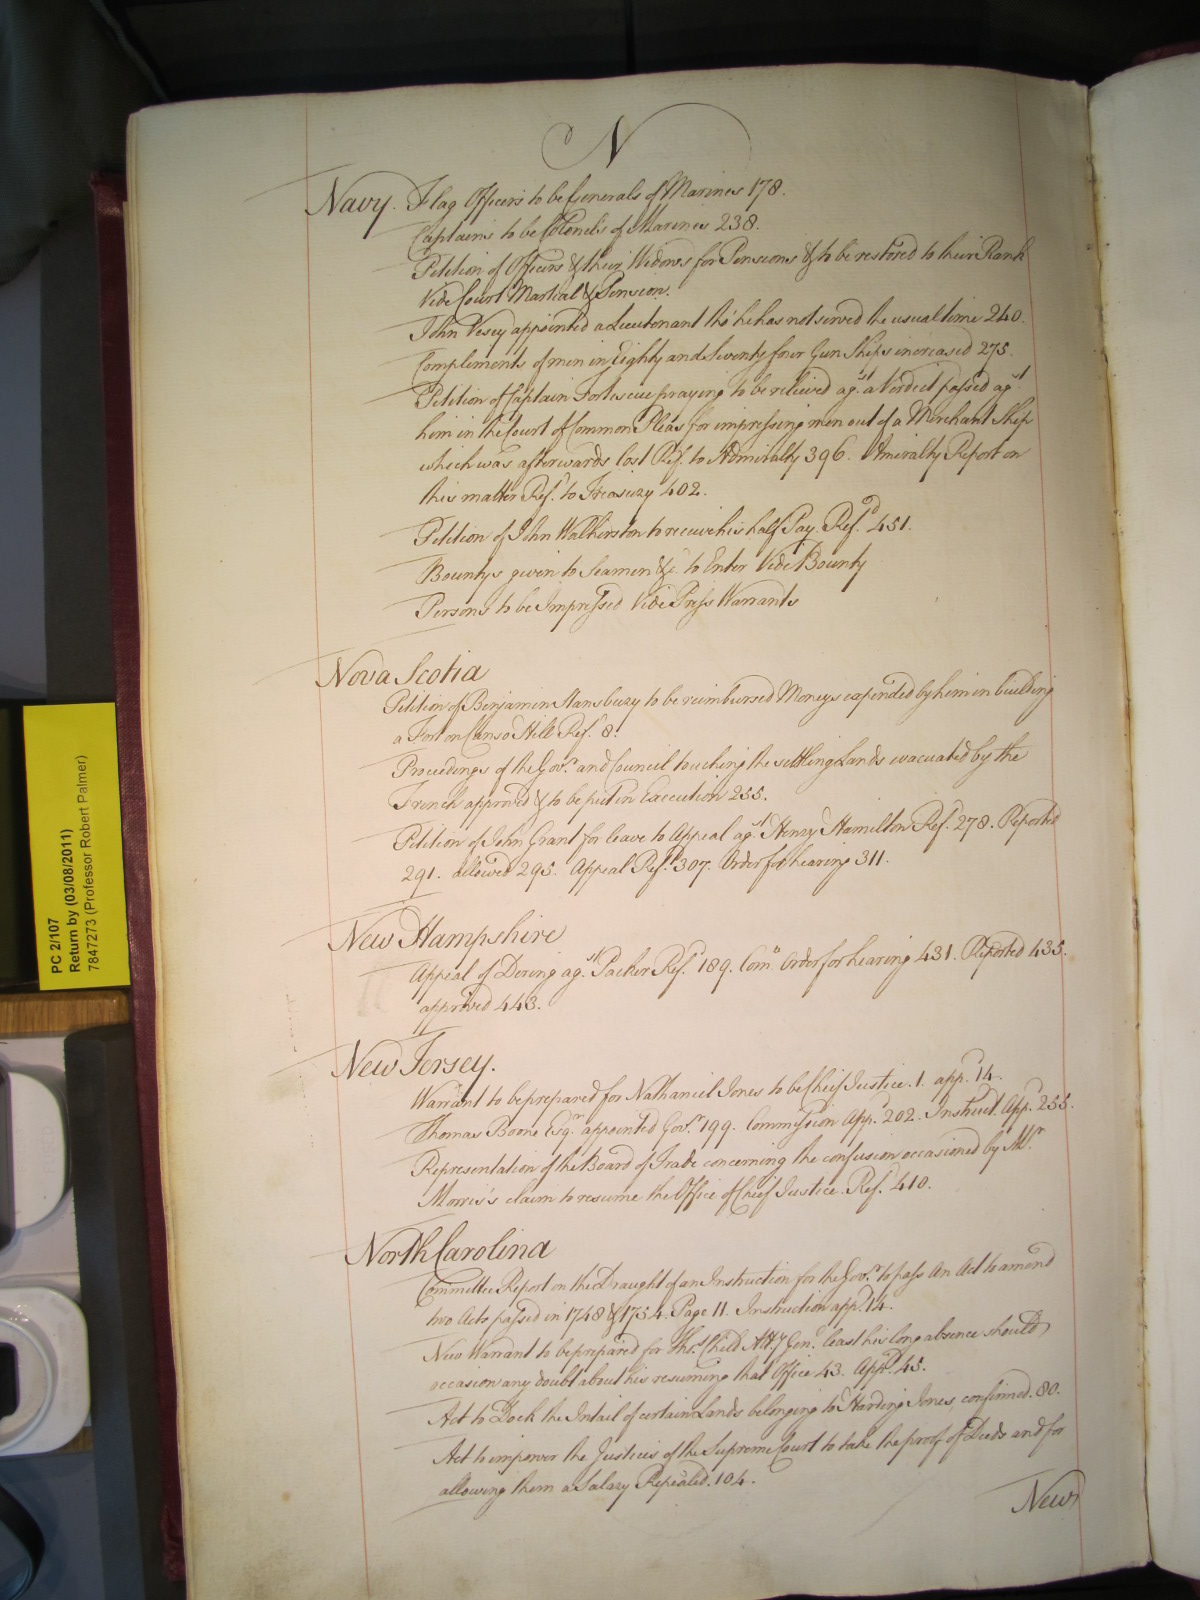 N
Navy. Flag Officers to be Generals of Marines 178.
Captains to be Colonels of Marines 238.
Petition of Officers & their Widows for Pensions & to be restored to their Rank
Vide Court Martial & Pension.
John Vesey appointed a Lieutenant tho' he has not served the usual time 240.
Compliments of men in Eighty and Seventy four Gun Ships increased 275.
Petition of Captain Fortescue praying to be relieved agst. a Verdict passed agst.
him in the Court of Common Pleas for impressing men out of a Merchant Ship
which was afterwards lost Refd. to Admiralty 396. Amiralty Report on
this matter Refd. to Treasury 402.
Petition of John Walkinston to receive his half Pay Refd. 451.
Bountys given to Seamen &c. to Enter Vide Bounty
Persons to be Impressed Vide Press Warrants
Nova Scotia
Petition of Benjamin Hansbury to be reimbursed Moneys expended by him in building
a Fort on Canso Hill Refd. 8.
Proceedings of the Govr. and Council touching the settling Lands evacuated by the
French approved & to be put in Execution 255.
Petition of John Grant for leave to Appeal agst. Henry Hamilton Refd. 278. Reported
291. allowed 295. Appeal Refd. 307. Order for hearing 311.
New Hampshire
Appeal of Dering agst. Packer Refd. 189. Comee. Order for hearing 431. Reported 435.
approved 443.
New Jersey.
Warrant to be prepared for Nathaniel Jones to be Chief Justice. 1. appd. 14.
Thomas Boone Esqr. appointed Govr. 199. Commission Appd. 202. Instruct. Appd. 255.
Representation of the Board of Trade concerning the confusion occasioned by Mr.
Morris's claim to resume the Office of Chief Justice. Refd. 410.
North Carolina
Committee Report on the Draught of an Instruction for the Govr. to pass An Act to amend
two Acts passed in 1748 & 1754. Page 11. Instruction appd. 14.
New Warrant to be prepared for Thos. Child Atty Genl. least his long absence should
occasion any doubt about his resuming that Office 43. Appd. 45.
Act to Dock the Intail of certain Lands belonging to Harding Jones, confirmed. 80.
Act to impower the Justices of the Supreme Court to take the proof of Deeds and for
allowing them a Salary Repealed. 104.
New
PC 2/107
Return by (03/08/2011)
7847273 (Professor Robert Palmer)